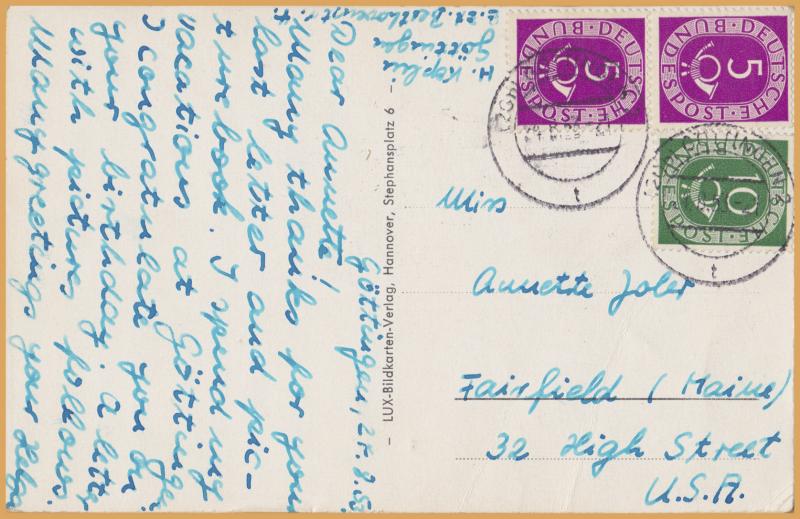 H. Köplin
Göttingen
Göttingen, 25.8.53
Dear Annette!
Many thanks for your
last letter and pic-
turebook. I spend my
vacations at Göttingen
I congratulate you to
your birthday. A letter
with pictures follows.
Many greetings your Helga
LUX-Bildkarten-Verlag, Hannover, Stephansplatz 6
DEUTSCHE BUNDESPOST
5
DEUTSCHE BUNDESPOST
5
DEUTSCHE BUNDESPOST
10
t
t
Miss
Annette Joler
Fairfield (Maine)
32 High Street
U.S.A.